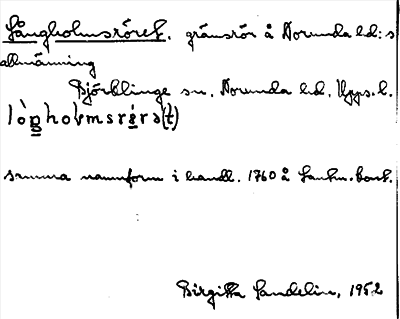 Långholmsröret, gränsrör å Norunda hd:s
allmänning
Björklinge sn, Norunda hd, Upps. l.
samma namnform i handl. 1760 å Lantm.kont.
Birgitta Sandelin, 1952